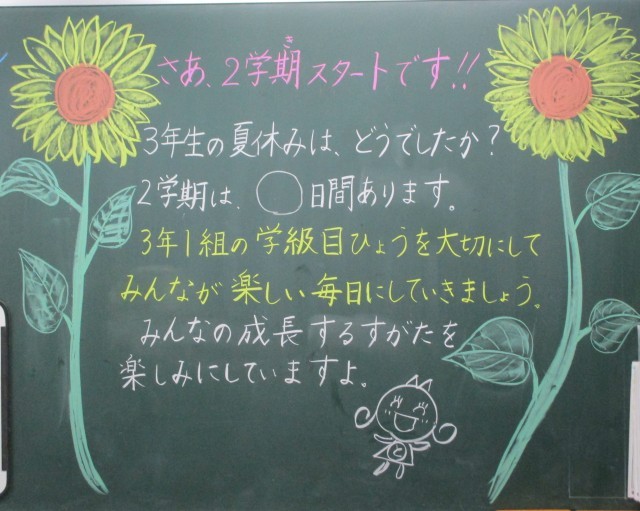 さあ、2学期スタートです!!
3年生の夏休みは、どうでしたか?
2学期は、◯日間あります。
3年1組の学級目ひょうを大切にして
みんなが楽しい毎日にしていきましょう。
みんなの成長するすがたを
楽しみにしていますよ。
と